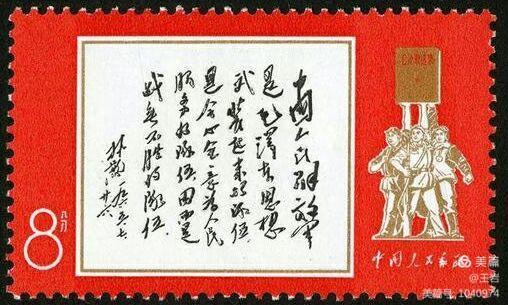 中国人民解放军
是毛泽东思想
武装起来的队伍,
是全心全意为人民
服务的队伍,因而是
战无不胜的队伍。
林彪
廿六
毛泽东选集
8分
中国人民邮
美篇
@王岩
美篇号: 1040974